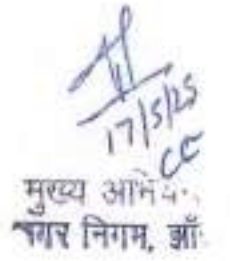 17/5/25
CE
मुख्य अभि
नगर निगम, झाँ